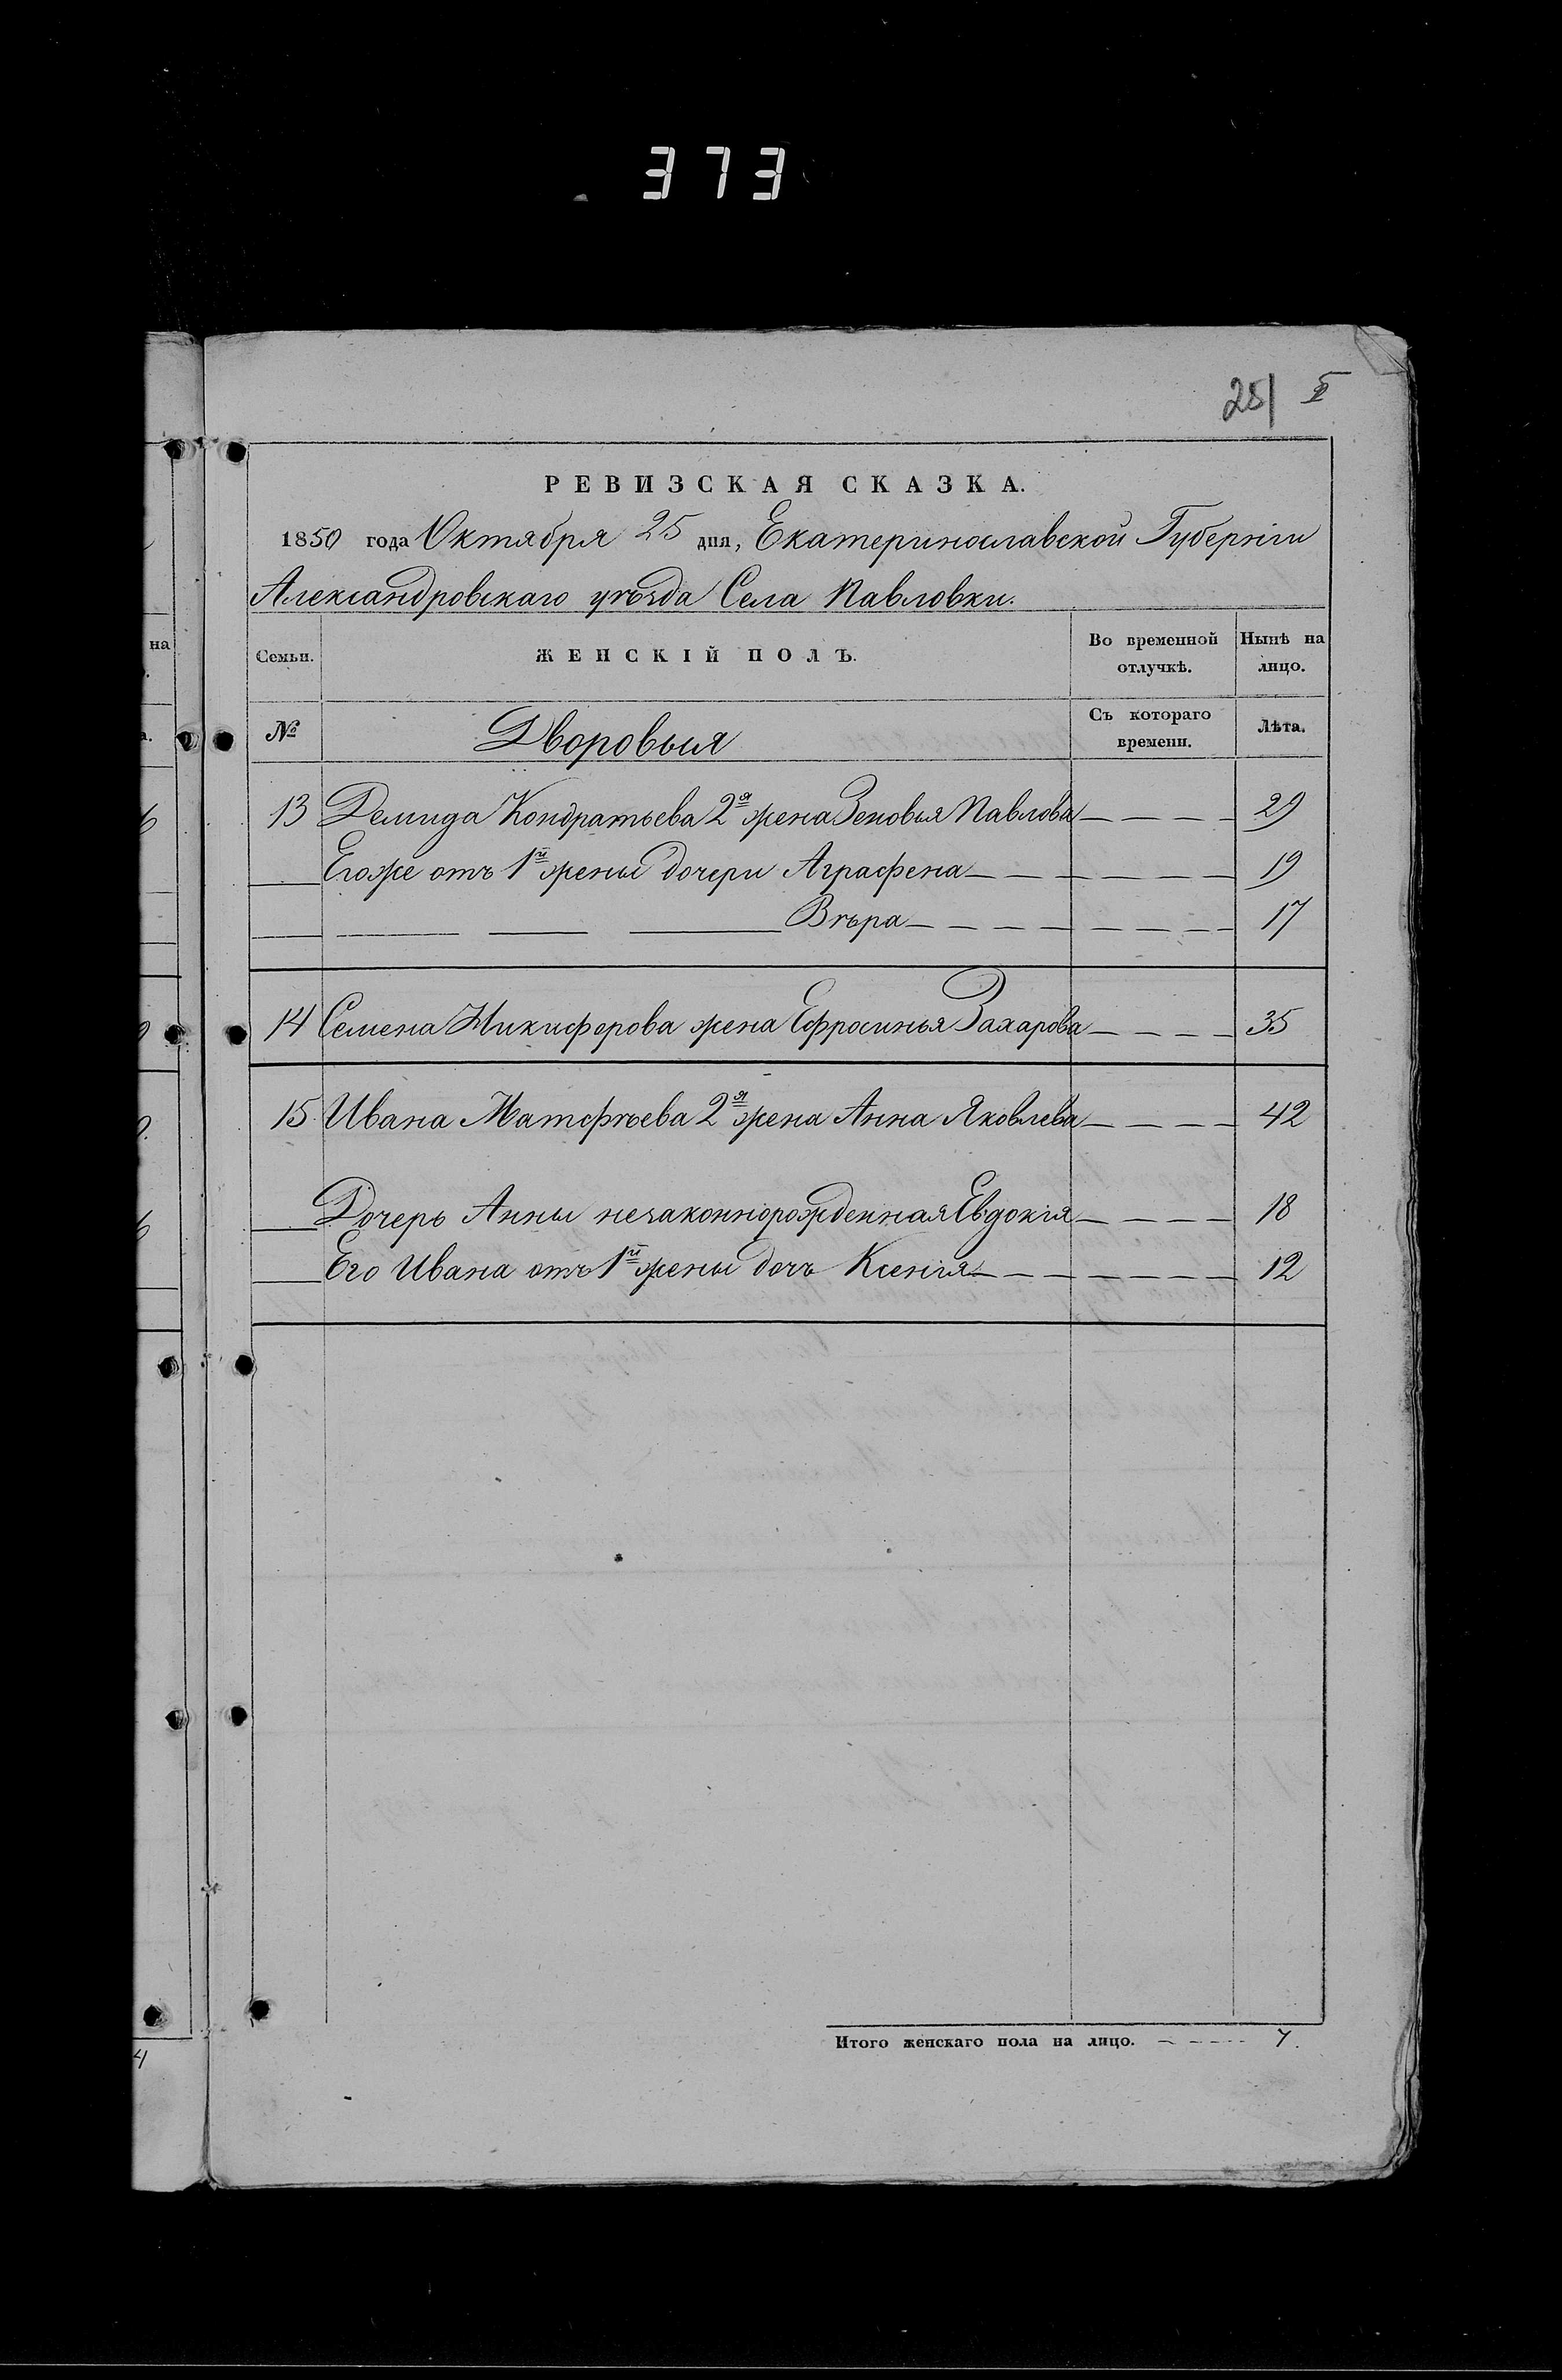 373
251 5
РЕВИЗСКАЯ СКАЗКА.
1850 года Октября 25 дня, Екатеринославской Губерніи
Александровскаго уѣзда Села Павловки.
Семьи. ЖЕНСКІЙ ПОЛЪ. Во временной отлучкѣ. Нынѣ на лицо.
№ Дворовыя Съ котораго времени. Лѣта.
13 Демида Кондратьева 2я жена Зеновья Павлова 29
Егоже отъ 1й жены дочери Аграфена 19
Вѣра 17
14 Семена Никифорова жена Ефросинья Захарова 35
15 Ивана Матфѣева 2я жена Анна Яковлева 42
Дочерь Анны незаконнорожденная Евдокія 18
Его Ивана отъ 1й жены дочь Ксенія 12
Итого женскаго пола на лицо. 7.